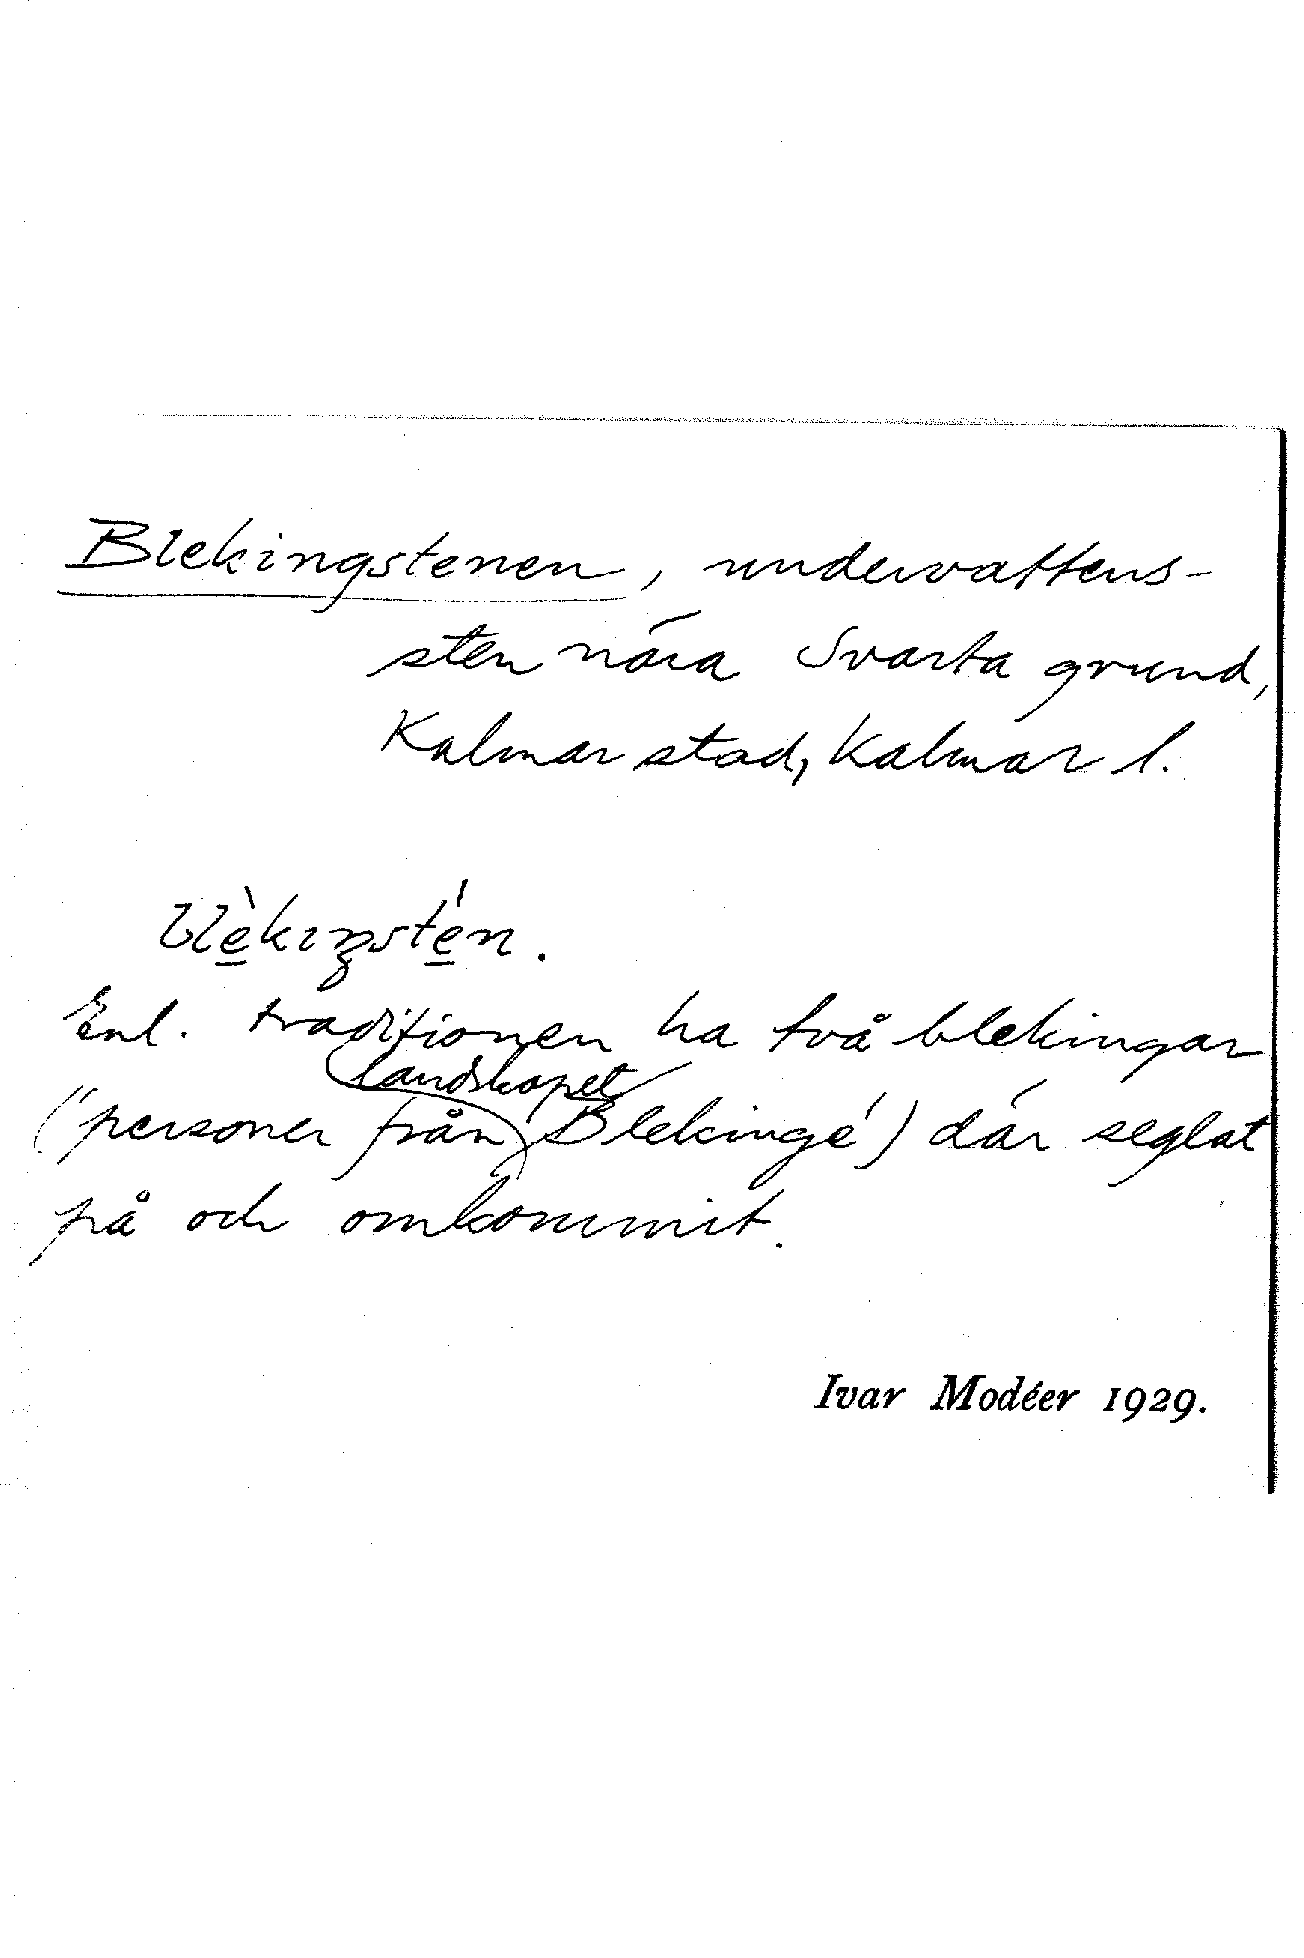 Blekingstenen, undervattens-
sten nära Svarta grund,
Kalmar stad, Kalmar l.
blèkıŋstén.
Enl. traditionen ha två blekingar
landskapet
('personer från Blekinge') där seglat
på och omkommit.
Ivar Modéer 1929.